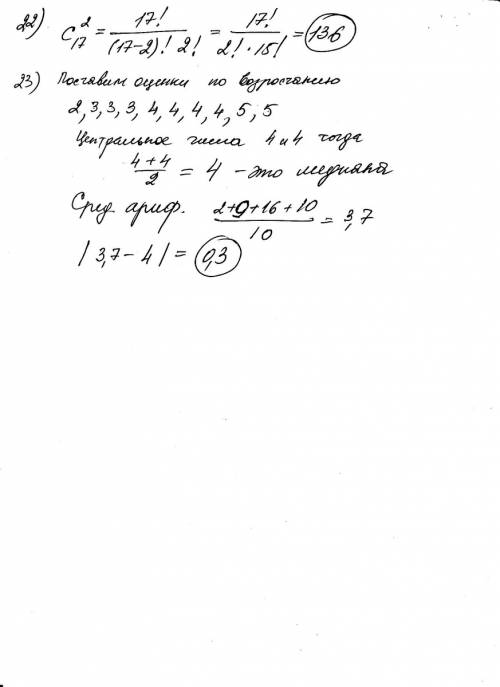 22) C₁₇² = 17! / (17-2)! 2! = 17! / 2! · 15! = 136
23) Поставим оценки по возростанию
2, 3, 3, 3, 4, 4, 4, 4, 5, 5
Центральное числа 4 и 4 тогда
4+4 / 2 = 4 - это медиана
Сред. ариф. 2+9+16+10 / 10 = 3,7
| 3,7 - 4 | = 0,3